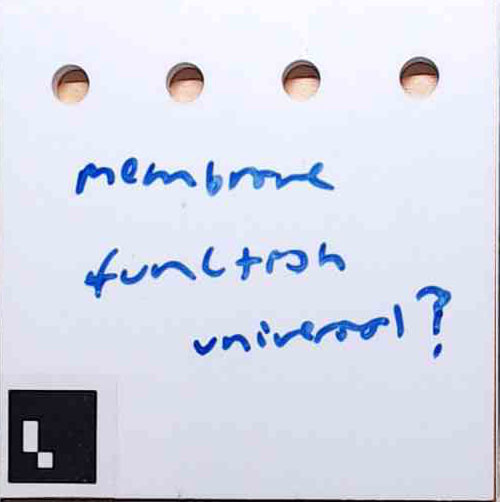 membrane
function
universal?